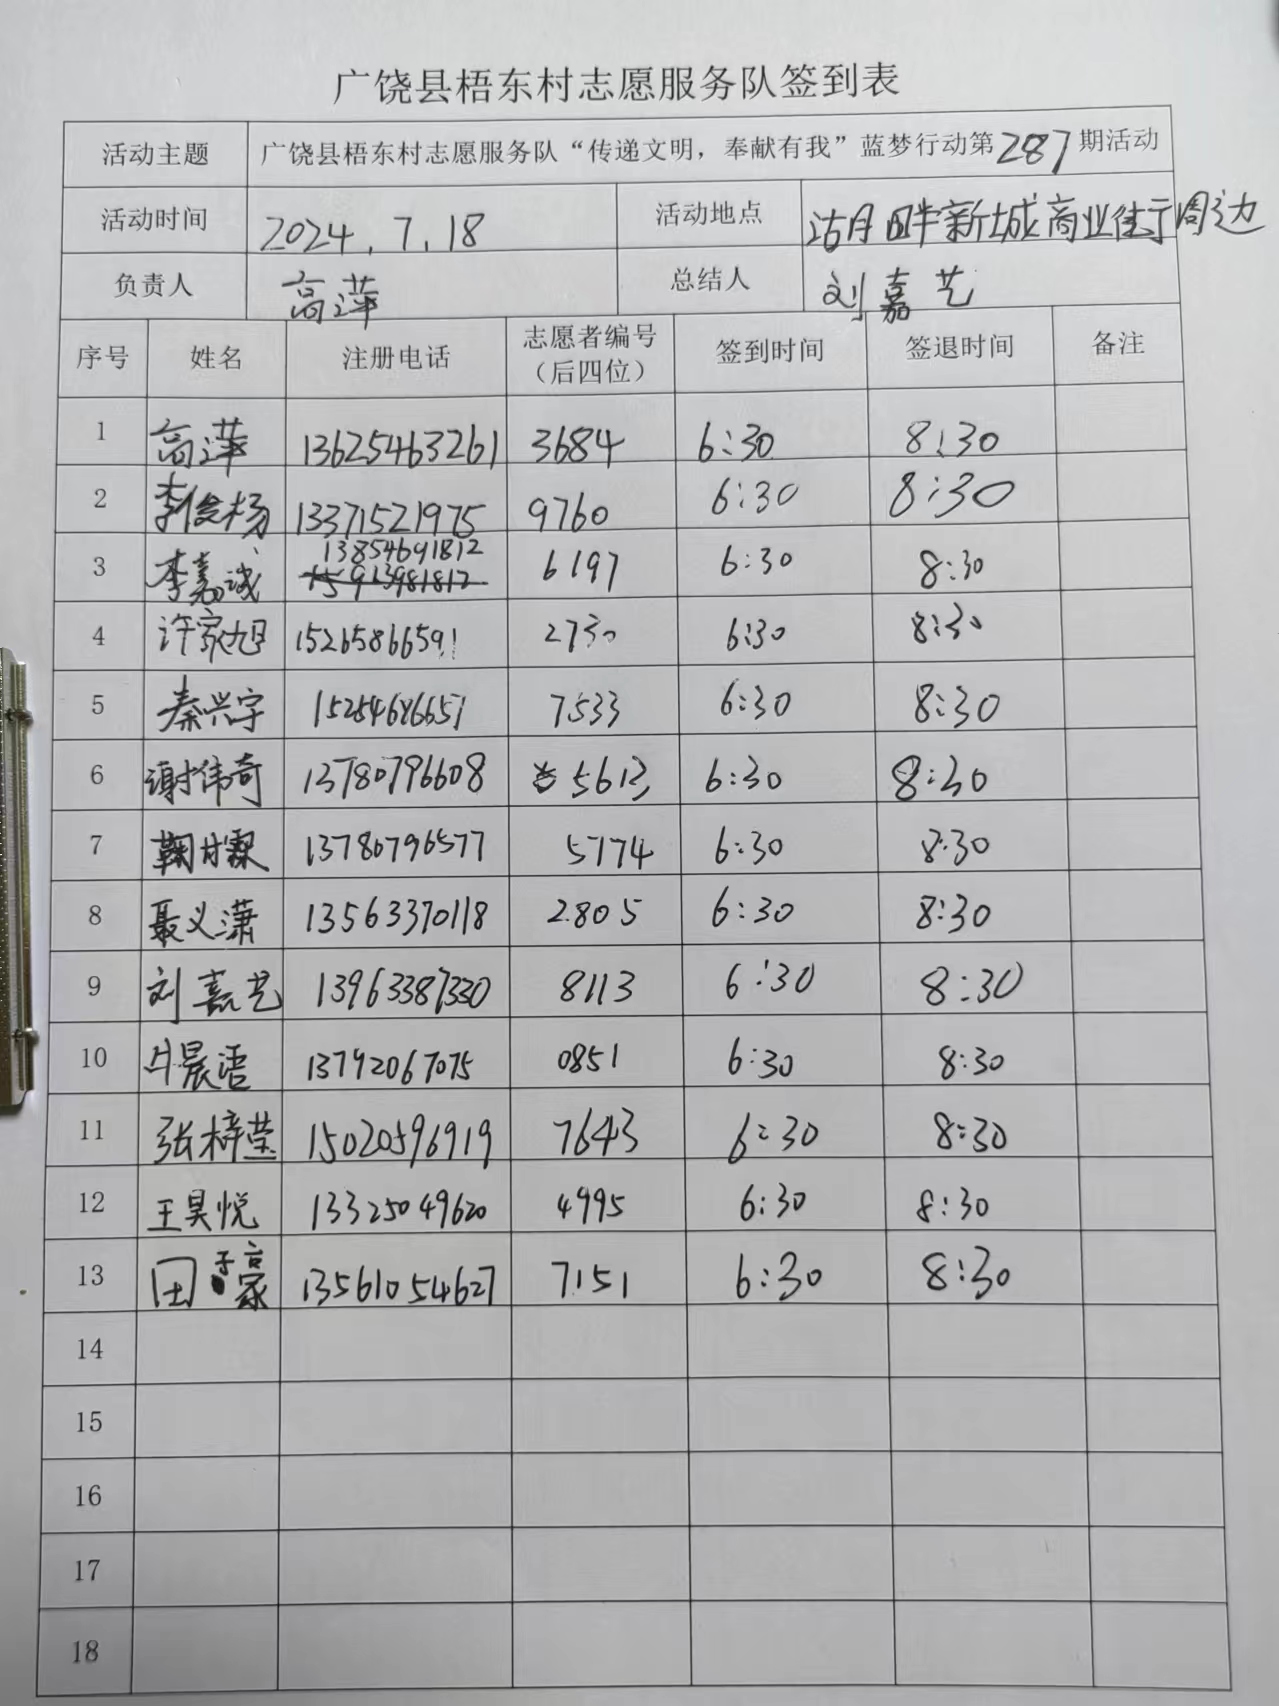 广饶县梧东村志愿服务队签到表
活动主题 广饶县梧东村志愿服务队“传递文明，奉献有我”蓝梦行动第287期活动
活动时间 2024.7.18 活动地点 湖畔新城商业街周边
负责人 高萍 总结人 刘嘉艺
序号 姓名 注册电话 志愿者编号（后四位） 签到时间 签退时间 备注
1 高萍 13625463261 3684 6:30 8:30
2 李俊杨 13371521975 9760 6:30 8:30
3 李嘉诚 13854691812 6197 6:30 8:30
4 许家旭 15265866591 2730 6:30 8:30
5 秦兴宇 15254686657 7533 6:30 8:30
6 谢伟奇 13780796608 5613 6:30 8:30
7 鞠甘霖 13780796577 5774 6:30 8:30
8 聂义潇 13563370118 2805 6:30 8:30
9 刘嘉艺 13963387330 8113 6:30 8:30
10 牛晨语 13792067075 0851 6:30 8:30
11 张梓莹 15020596919 7643 6:30 8:30
12 王昊悦 13325049620 4995 6:30 8:30
13 田子豪 13561054627 7151 6:30 8:30
14
15
16
17
18